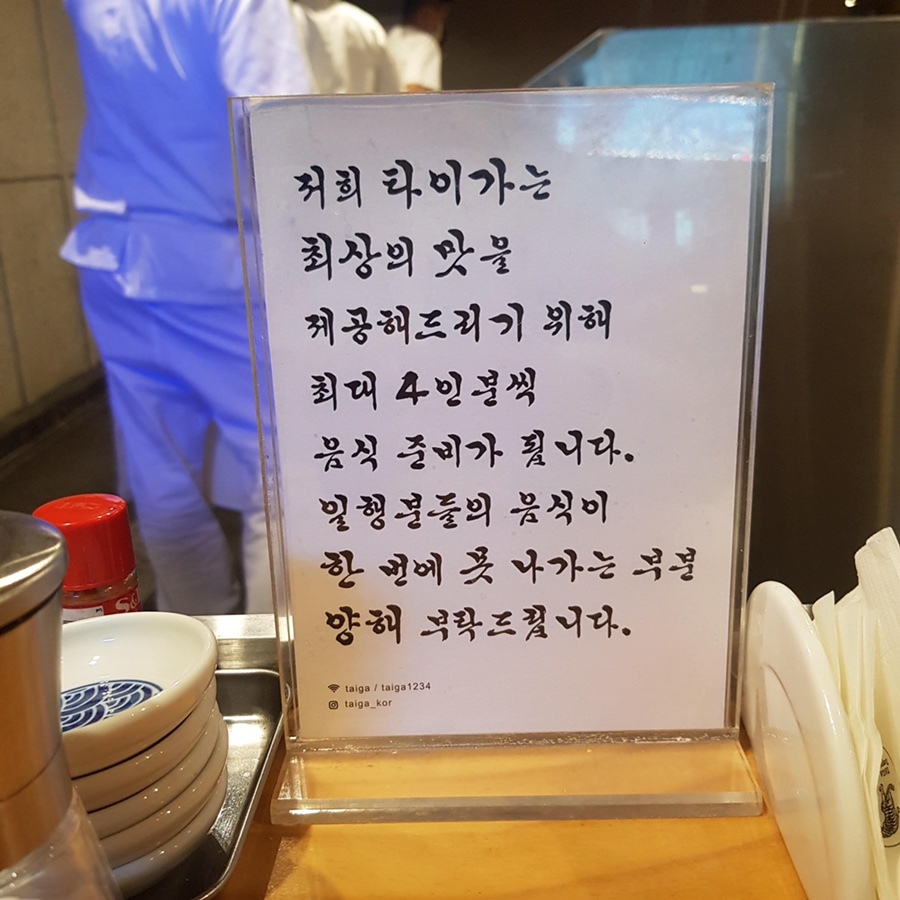 저희 타이가는
최상의 맛을
제공해드리기 위해
최대 4인분씩
음식 준비가 됩니다.
일행분들의 음식이
한 번에 못 나가는 부분
양해 부탁드립니다.
taiga / taiga1234
taiga_kor